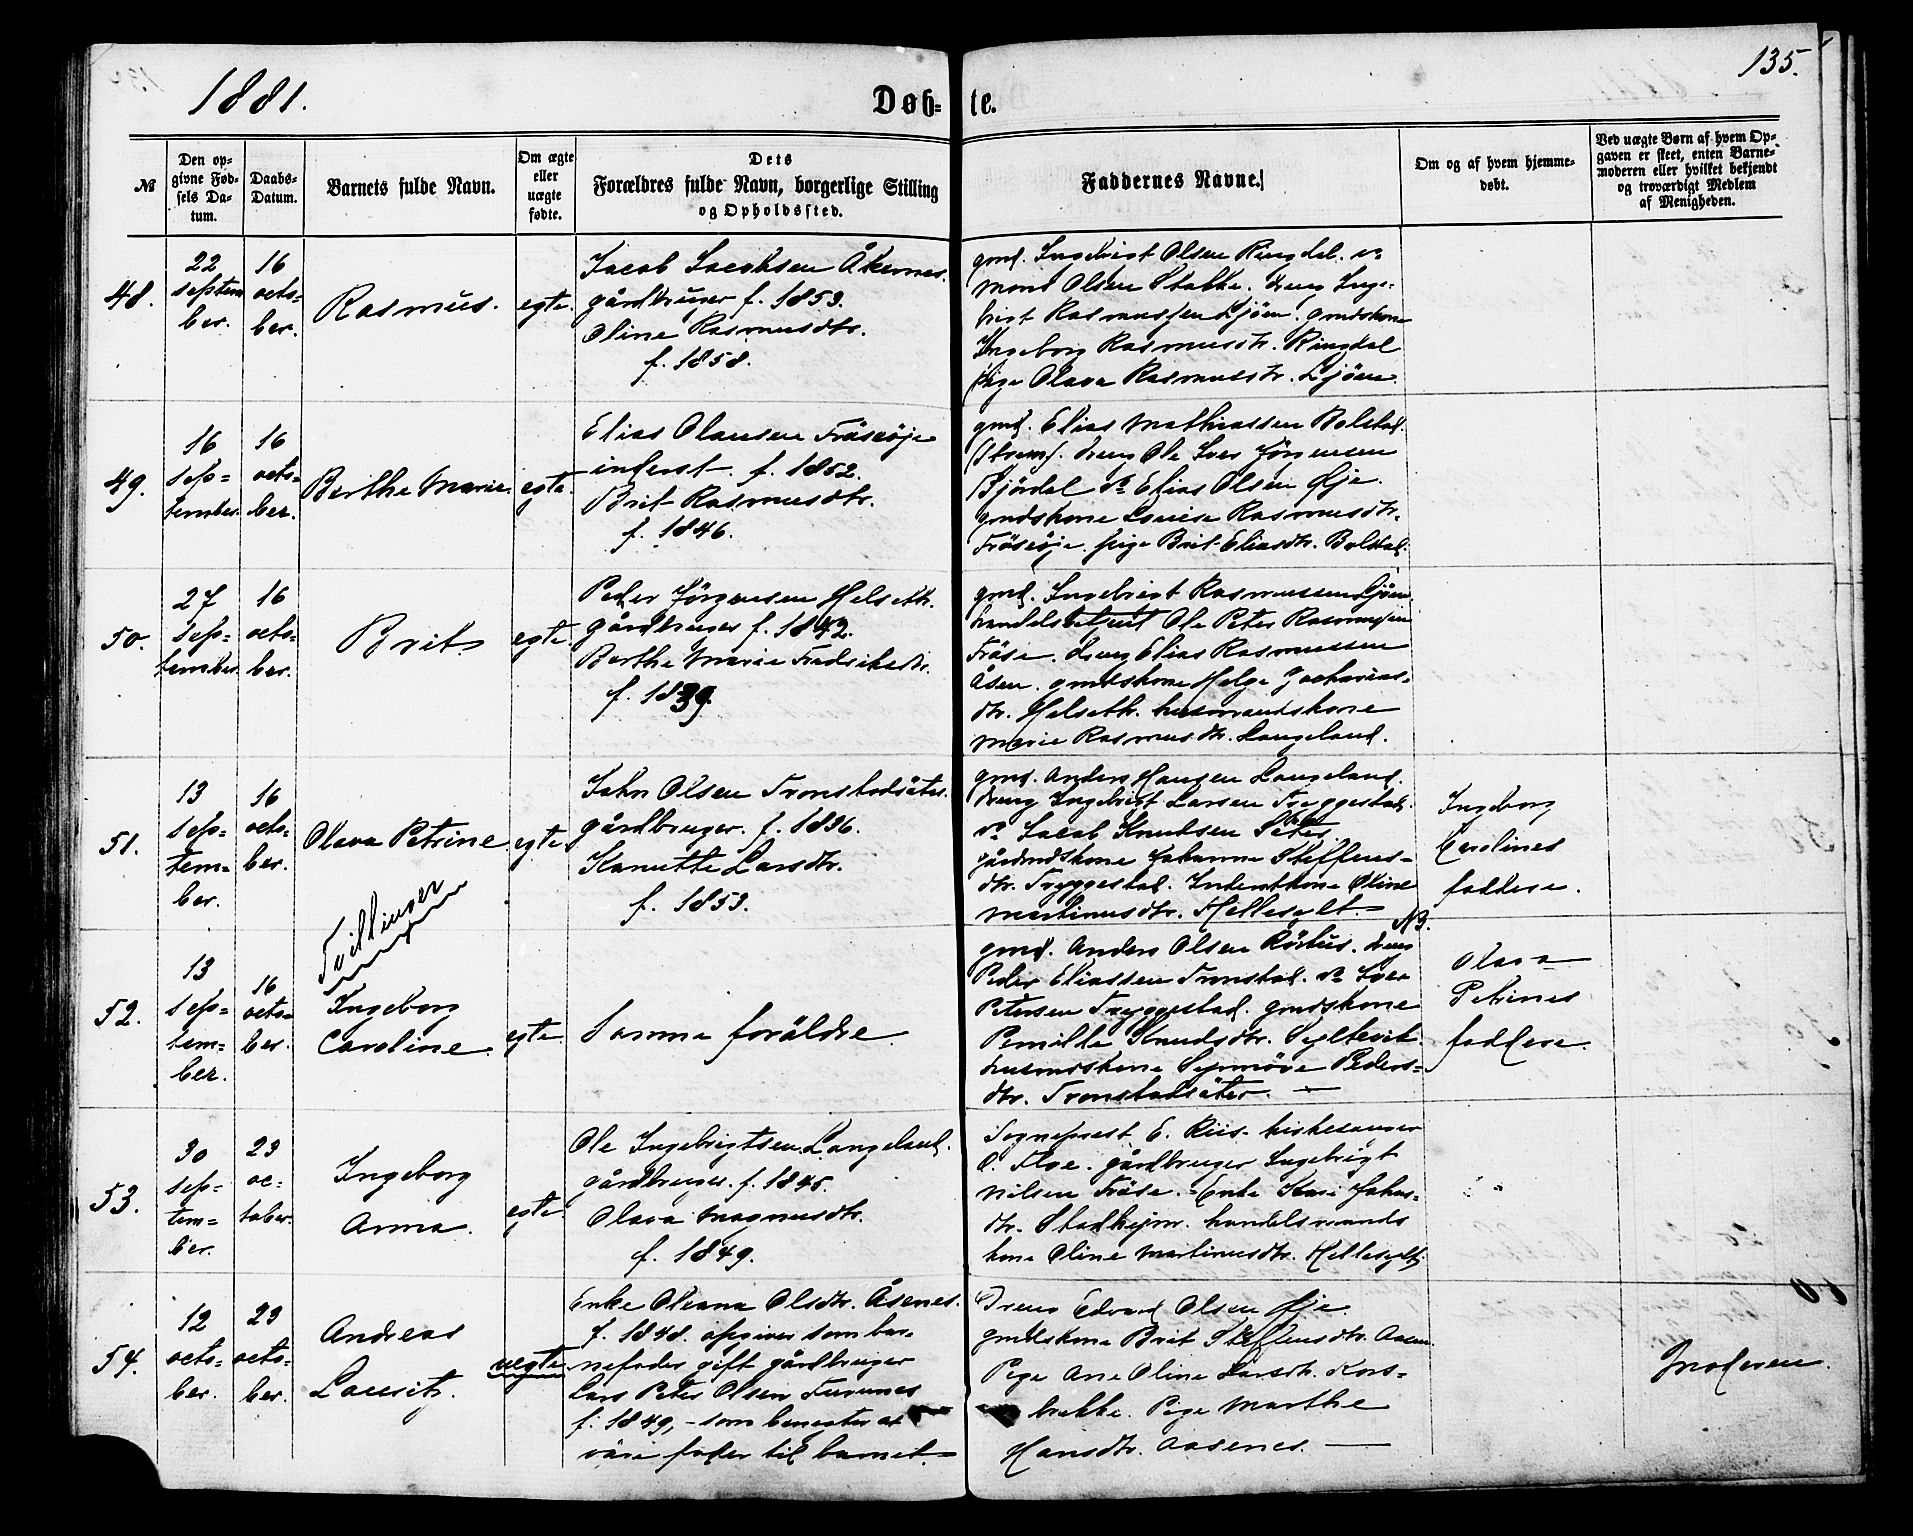 1881.
Døb-
te.
135.
№
Den op-
givne Fød-
sels Da-
tum.
Daabs-
Datum.
Barnets fulde Navn.
Om ægte
eller
uægte
fødte.
Dets
Forældres fulde Navn, borgerlige Stilling
og Opholdssted.
Faddernes Navne.
Om og af hvem hjemme-
døbt.
Ved uægte Børn af hvem Op-
gaven er skeet, enten Barne-
moderen eller hvilket bekjendt
og troværdigt Medlem
af Menigheden.
48.
22
septem
ber.
16
octo-
ber.
Rasmus.
egte.
Jacob Jacobsen Åkernes.
gårdbruger f. 1853.
Oline Rasmusdtr.
f. 1858.
gmd. Ingebrigt Olsen Ringdal. do
Mons Olsen Stakke. dreng Inge-
brigt Rasmussen Ljöen. gmdskone
Ingeborg Rasmusdtr. Ringdal
pige Olava Rasmusdtr. Ljöen.
49.
16
sep-
tember.
16
octo-
ber.
Berthe Marie.
egte.
Elias Olausen Fröseöje
inderst. f. 1852.
Brit Rasmusdtr.
f. 1846.
gmd. Elias Mathiassen Bolstad.
(Strand). dreng Ole Iver Jörgensen
Björdal do Elias Olsen Øje.
gmdskone Lovise Rasmusdtr.
Fröseöje. pige Brit Eliasdtr. Bolstad.
50.
27
sep-
tember.
16
octo-
ber.
Brit.
egte.
Peder Jörgensen Helseth.
gårdbruger f. 1842.
Berthe Marie Fredriksdtr.
f. 1839.
gmd. Ingebrigt Rasmussen Ljöen.
handelsbetjent Ole Peter Rasmussen
Fröse. dreng Elias Rasmussen
Åsen. gmdskone Helge Zacharias-
dtr. Helseth. husmandskone
Marie Rasmusdtr. Langeland.
51.
13
sep-
tem-
ber.
16
octo-
ber.
Olava Petrine
egte.
John Olsen Tronstadsäter.
gårdbruger. f. 1836.
Kanutte Larsdtr.
f. 1853.
gmd. Anders Hansen Langeland.
dreng Ingebrigt Larsen Tryggestad.
do Jacob Knudsen Säter
gårdmdskone Johanne Steffens-
dtr. Tryggestad. Inderstkone Oline
Martinusdtr. Hellesylt.
Ingeborg
Carolines
faddere.
Tvillinger
52.
13
sep-
tem-
ber.
16
octo-
ber.
Ingeborg
Caroline.
egte.
Samme foräldre.
NB.
gmd. Anders Olsen Röthus. dreng
Peder Eliassen Tronstad. do Iver
Petersen Tryggestad. gmdskone
Pernille Knudsdtr. Sylteviк.
husmdskone Synnöve Peders-
dtr. Tronstadsäter.
Olava
Petrines
faddere.
53.
30
sep-
tem-
ber.
23
oc-
tober.
Ingeborg
Anna.
egte.
Ole Ingebrigtsen Langeland.
gårdbruger. f. 1845.
Olava Magnusdtr.
f. 1849.
Sogneprest E. Riis. kirkesanger
O. Floe. gårdbruger Ingebrigt
Nilsen Fröse. Enke Kari Johns-
dtr. Stadheim. handelsmands
kone Oline Martinusdtr. Hellesylt.
54.
12
octo-
ber.
23
octo-
ber.
Andreas
Lauritz.
uegte
Enke Oliana Olsdtr. Åsenes.
f. 1848. opgiver som bar-
nefader gift gårdbruger
Lars Peter Olsen Furenes
f. 1849, - som benegter at
väre fader til barnet.
Dreng Edvard Olsen Øje
gmdskone Brit Steffensdtr. Aasen.
Pige Ane Oline Larsdtr. Kors-
brekke. Pige Marthe
Hansdtr. Aasenes.
Moderen.